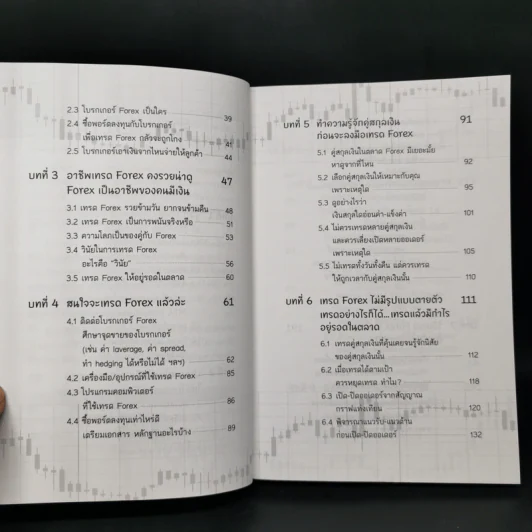 2.3 โบรกเกอร์ Forex เป็นใคร 39
2.4 ซื้อพอร์ตลงทุนกับโบรกเกอร์
เพื่อเทรด Forex กลัวจะถูกโกง 41
2.5 โบรกเกอร์เอาเงินจากไหนจ่ายให้ลูกค้า 44
บทที่ 3 อาชีพเทรด Forex คงรวยน่าดู 47
Forex เป็นอาชีพของคนมีเงิน
3.1 เทรด Forex รวยข้ามวัน ยากจนข้ามคืน 48
3.2 เทรด Forex เป็นการพนันจริงหรือ 51
3.3 ความโลภเป็นของคู่กับ Forex 53
3.4 วินัยในการเทรด Forex
อะไรคือ "วินัย" 56
3.5 เทรด Forex ให้อยู่รอดในตลาด 60
บทที่ 4 สนใจจะเทรด Forex แล้วล่ะ 61
4.1 ติดต่อโบรกเกอร์ Forex
ศึกษาจุดขายของโบรกเกอร์
(เช่น ค่า laverage, ค่า spread,
ทำ hedging ได้หรือไม่ได้ ฯลฯ) 62
4.2 เครื่องมือ/อุปกรณ์ที่ใช้เทรด Forex 85
4.3 โปรแกรมคอมพิวเตอร์
ที่ใช้เทรด Forex 86
4.4 ซื้อพอร์ตลงทุนเท่าไหร่ดี
เตรียมเอกสาร หลักฐานอะไรบ้าง 89
บทที่ 5 ทำความรู้จักคู่สกุลเงิน 91
ก่อนจะลงมือเทรด Forex
5.1 คู่สกุลเงินในตลาด Forex มีเยอะมั้ย
หาดูจากที่ไหน 92
5.2 เลือกคู่สกุลเงินให้เหมาะกับคุณ
เพราะเหตุใด 95
5.3 ดูอย่างไรว่า
เงินสกุลใดอ่อนค่า-แข็งค่า 101
5.4 ไม่ควรเทรดหลายคู่สกุลเงิน
และควรเลี่ยงเปิดหลายออเดอร์
เพราะเหตุใด 105
5.5 ไม่เทรดทั้งวันทั้งคืน แต่ควรเทรด
ให้ถูกเวลากับคู่สกุลเงินนั้น 110
บทที่ 6 เทรด Forex ไม่มีรูปแบบตายตัว 111
เทรดอย่างไรก็ได้...เทรดแล้วมีกำไร
อยู่รอดในตลาด
6.1 เทรดคู่สกุลเงินที่คุ้นเคยจนรู้จักนิสัย
ของคู่สกุลเงินนั้น 112
6.2 เมื่อเทรดได้ตามเป้า
ควรหยุดเทรด ทำไม? 118
6.3 เปิด-ปิดออเดอร์จากสัญญาณ
กราฟแท่งเทียน 120
6.4 พิจารณาแนวรับ-แนวต้าน
ก่อนเปิด-ปิดออเดอร์ 132